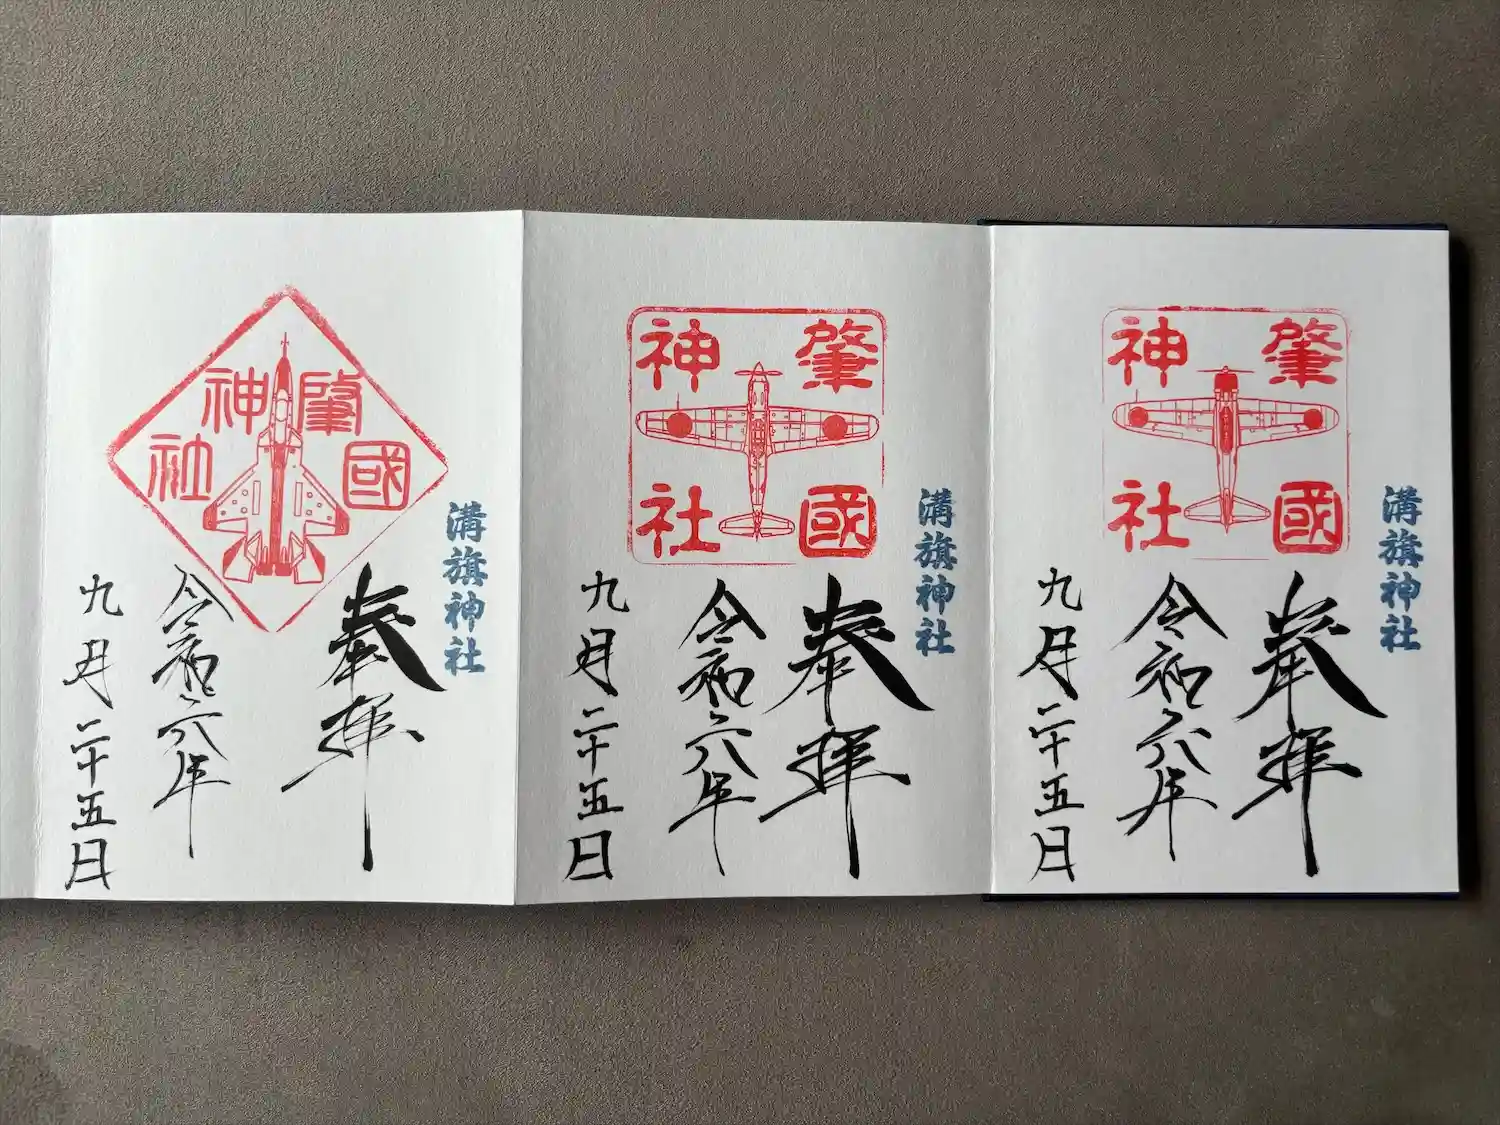 溝旗神社
肇國
神社
奉拝
令和六年
九月二十五日
溝旗神社
肇國
神社
奉拝
令和六年
九月二十五日
溝旗神社
肇國
神社
奉拝
令和六年
九月二十五日